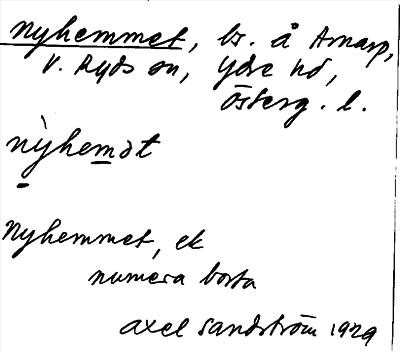 Nyhemmet, br. å Amarp,
V. Ryds sn, Ydre hd,
Österg. l.
nỳhemət
Nyhemmet, ek
numera borta
Axel Sandström 1929